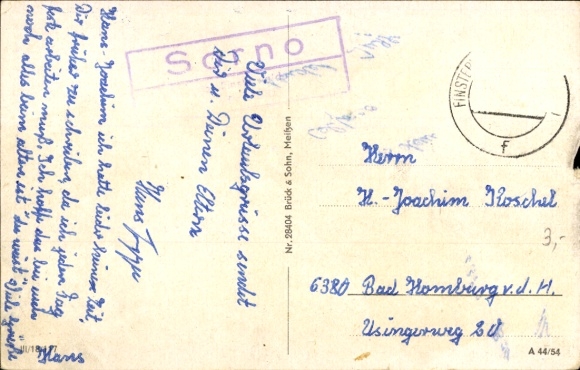 Sorno
FINSTER
f
Viele Urlaubsgrüsse sendet
Dir u. Deinen Eltern
Hans
Hans-Joachim ich hatte leider keine Zeit,
Dir früher zu schreiben, da ich jeden Tag
fest arbeiten muß. Ich hoffe das bei euch
noch alles beim alten ist
Viele Grüße
Hans
III/18/177
Nr. 28404 Brück & Sohn, Meißen
Herrn
H.-Joachim Koschel
3,-
6380 Bad Homburg v. d. H.
Usingerweg 20
A 44/54